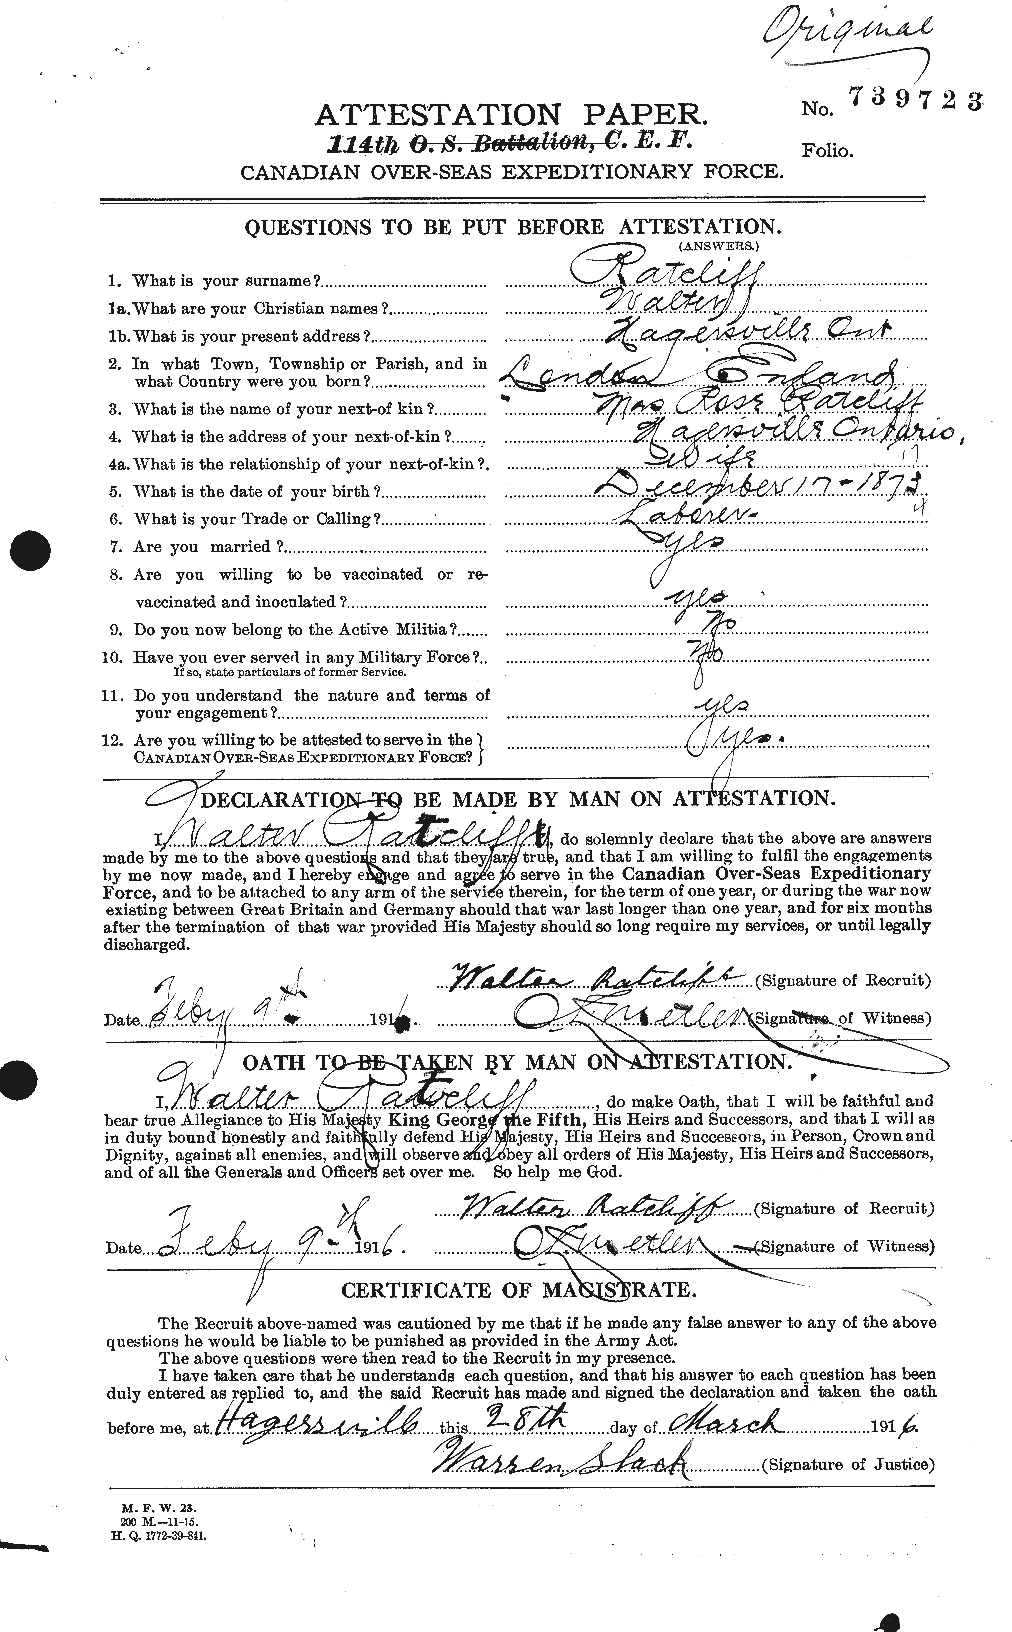 Original
No. 739723
ATTESTATION PAPER.
114th O. S. Battalion, C. E. F.
Folio.
CANADIAN OVER-SEAS EXPEDITIONARY FORCE.
QUESTIONS TO BE PUT BEFORE ATTESTATION.
(ANSWERS.)
1. What is your surname? Ratcliff
1a. What are your Christian names? Walter
1b. What is your present address? Hagersville Ont
2. In what Town, Township or Parish, and in
what Country were you born? London England
3. What is the name of your next-of kin? Mrs Rose Ratcliff
4. What is the address of your next-of-kin? Hagersville Ontario,
4a. What is the relationship of your next-of-kin? Wife
5. What is the date of your birth? December 17 - 187
6. What is your Trade or Calling? Laborer
7. Are you married? yes
8. Are you willing to be vaccinated or re-
vaccinated and inoculated? yes
9. Do you now belong to the Active Militia? No
10. Have you ever served in any Military Force? No
If so, state particulars of former Service.
11. Do you understand the nature and terms of
your engagement? yes
12. Are you willing to be attested to serve in the
CANADIAN OVER-SEAS EXPEDITIONARY FORCE? yes.
DECLARATION TO BE MADE BY MAN ON ATTESTATION.
I, Walter Ratcliff, do solemnly declare that the above are answers
made by me to the above questions and that they are true, and that I am willing to fulfil the engagements
by me now made, and I hereby engage and agree to serve in the Canadian Over-Seas Expeditionary
Force, and to be attached to any arm of the service therein, for the term of one year, or during the war now
existing between Great Britain and Germany should that war last longer than one year, and for six months
after the termination of that war provided His Majesty should so long require my services, or until legally
discharged.
Walter Ratcliff (Signature of Recruit)
Date Feby 9th 1916. (Signature of Witness)
OATH TO BE TAKEN BY MAN ON ATTESTATION.
I, Walter Ratcliff, do make Oath, that I will be faithful and
bear true Allegiance to His Majesty King George the Fifth, His Heirs and Successors, and that I will as
in duty bound honestly and faithfully defend His Majesty, His Heirs and Successors, in Person, Crown and
Dignity, against all enemies, and will observe and obey all orders of His Majesty, His Heirs and Successors,
and of all the Generals and Officers set over me. So help me God.
Walter Ratcliff (Signature of Recruit)
Date Feby 9th 1916. (Signature of Witness)
CERTIFICATE OF MAGISTRATE.
The Recruit above-named was cautioned by me that if he made any false answer to any of the above
questions he would be liable to be punished as provided in the Army Act.
The above questions were then read to the Recruit in my presence.
I have taken care that he understands each question, and that his answer to each question has been
duly entered as replied to, and the said Recruit has made and signed the declaration and taken the oath
before me, at Hagersville this 28th day of March 1916.
Warren Slack (Signature of Justice)
M. F. W. 23.
200 M.—11-15.
H. Q. 1772-39-841.